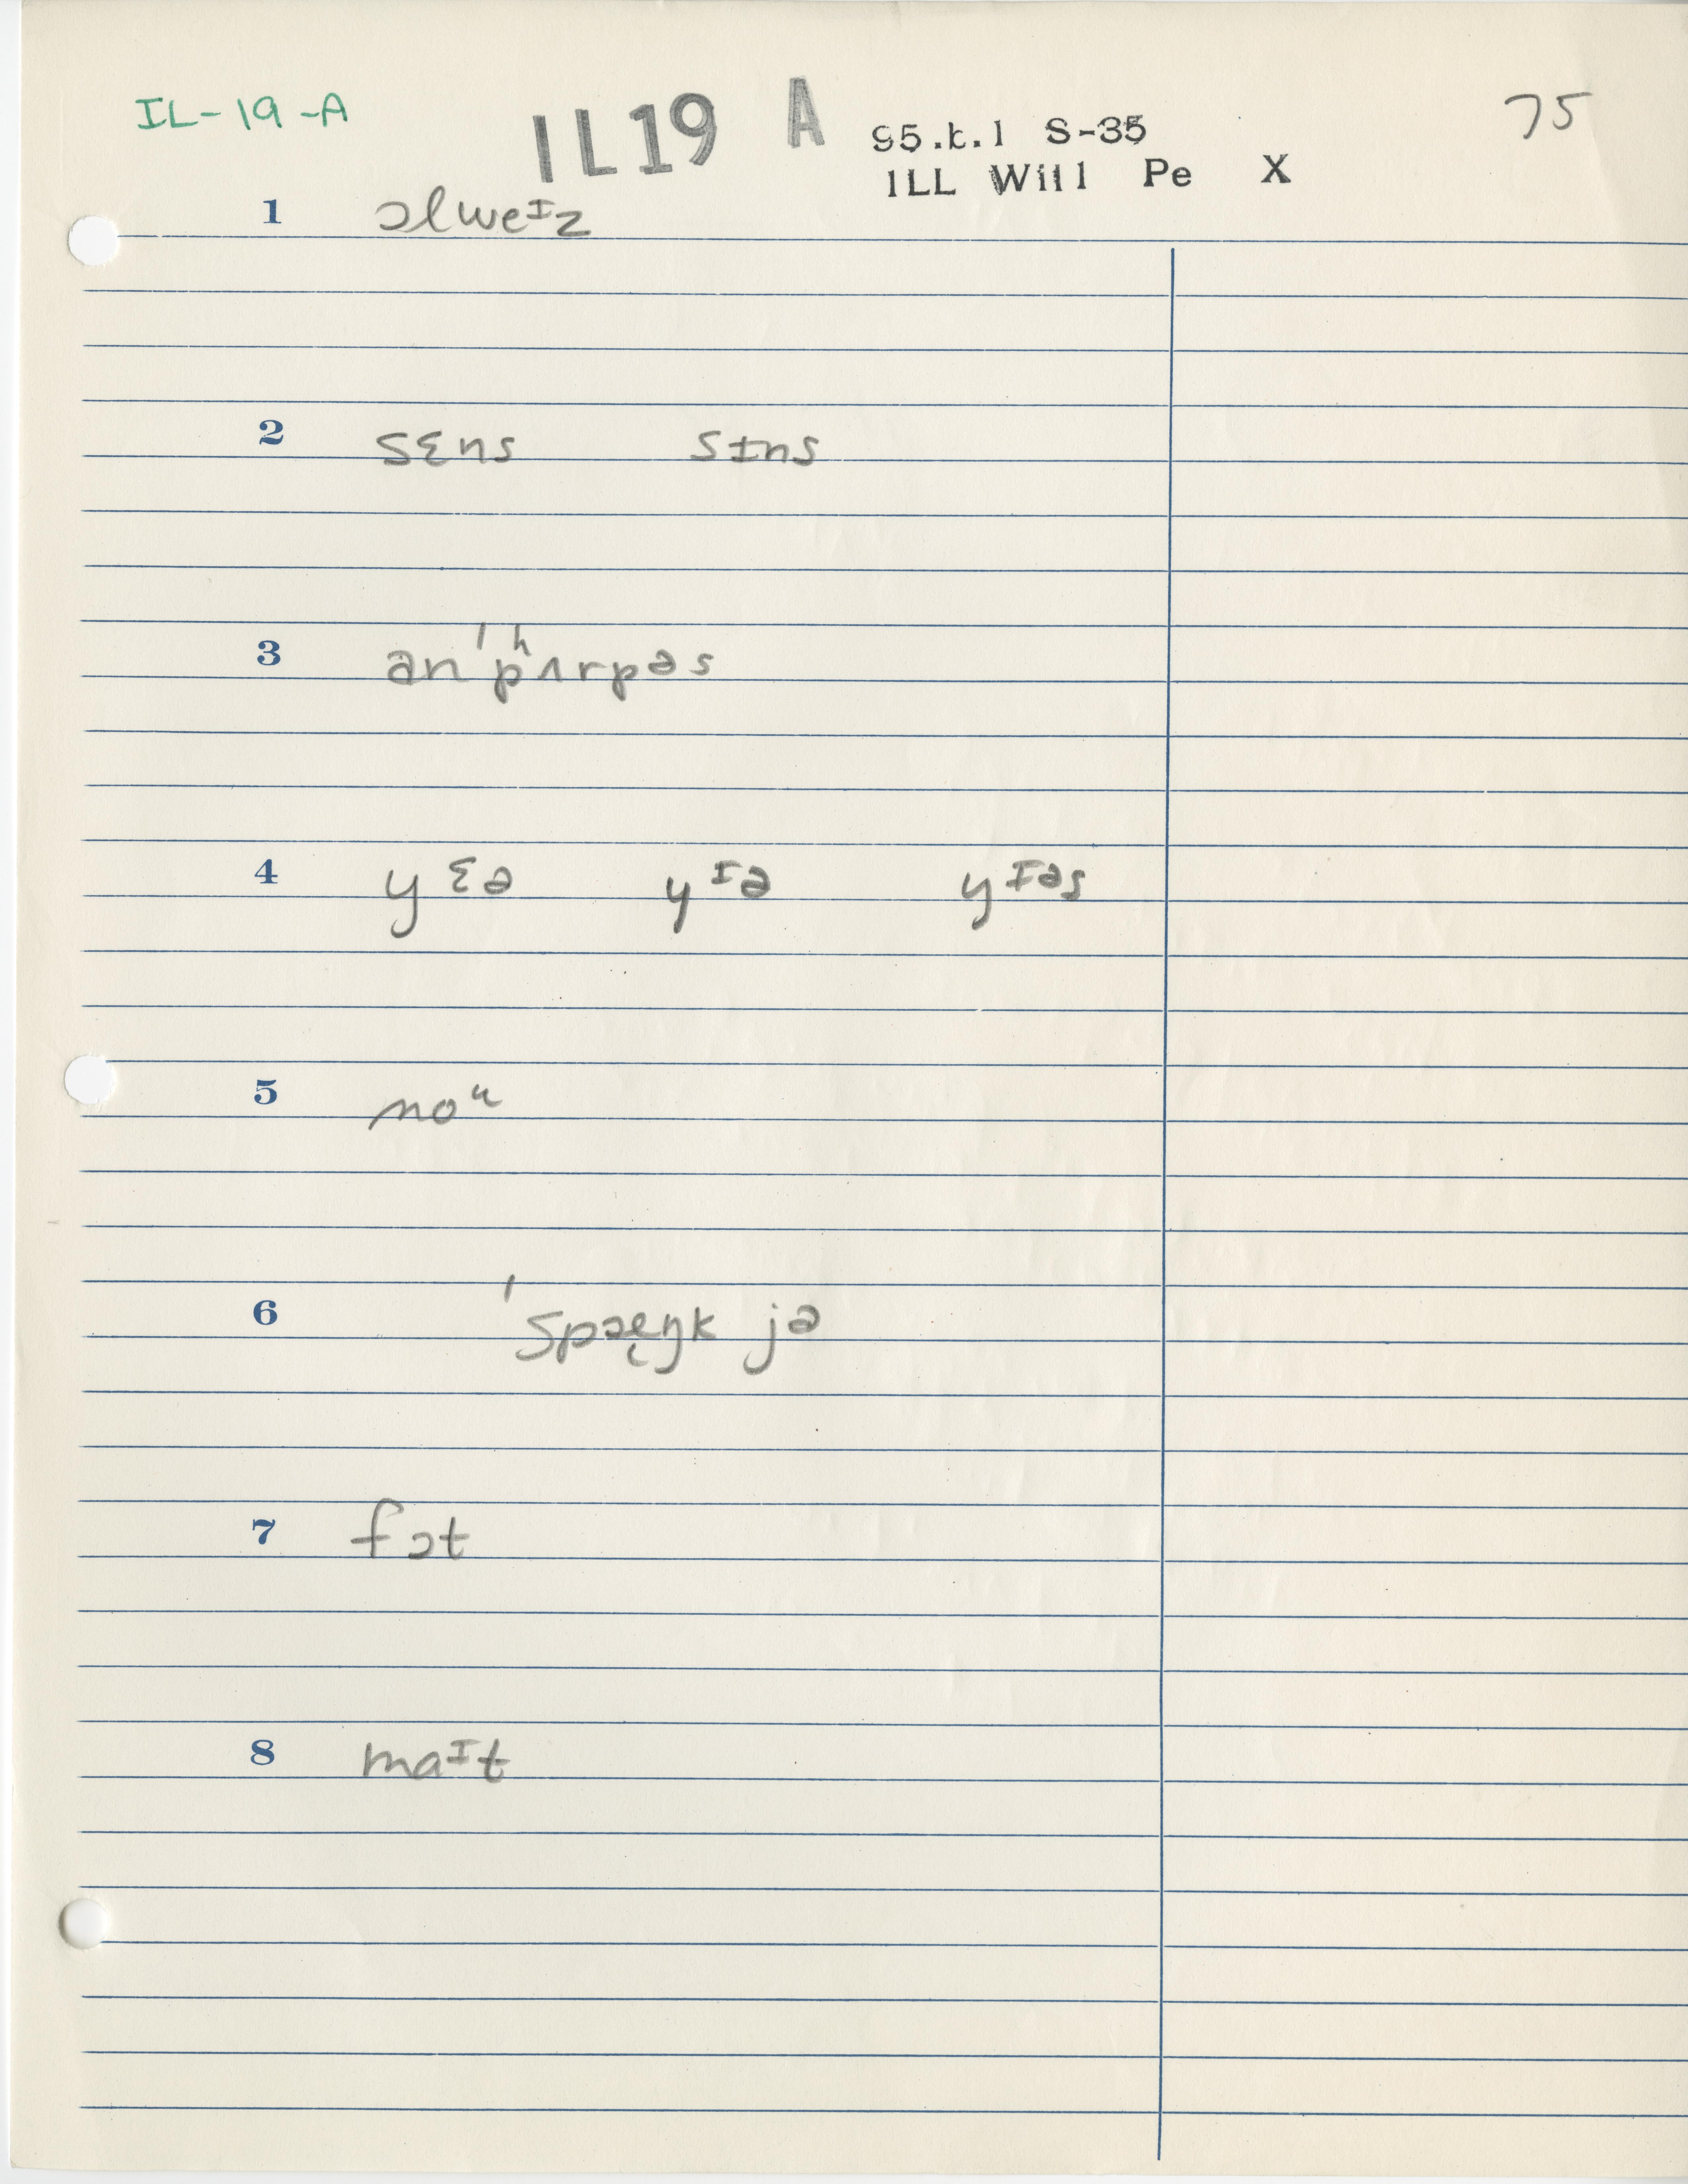 IL-19-A IL19 A 95.k.1 S-35 75
ILL Will Pe X
1 ɔlweᶦz
2 sɛns sɪns
3 ən'pʰʌrpəs
4 yᵋə yᶦə yᶦəs
5 noᵘ
6 'spæ̨ŋk jə
7 fɔt
8 maᶦt